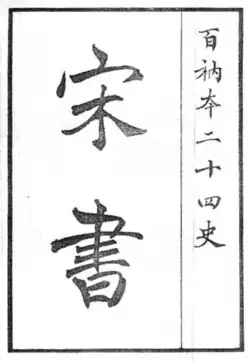 百衲本二十四史
宋書